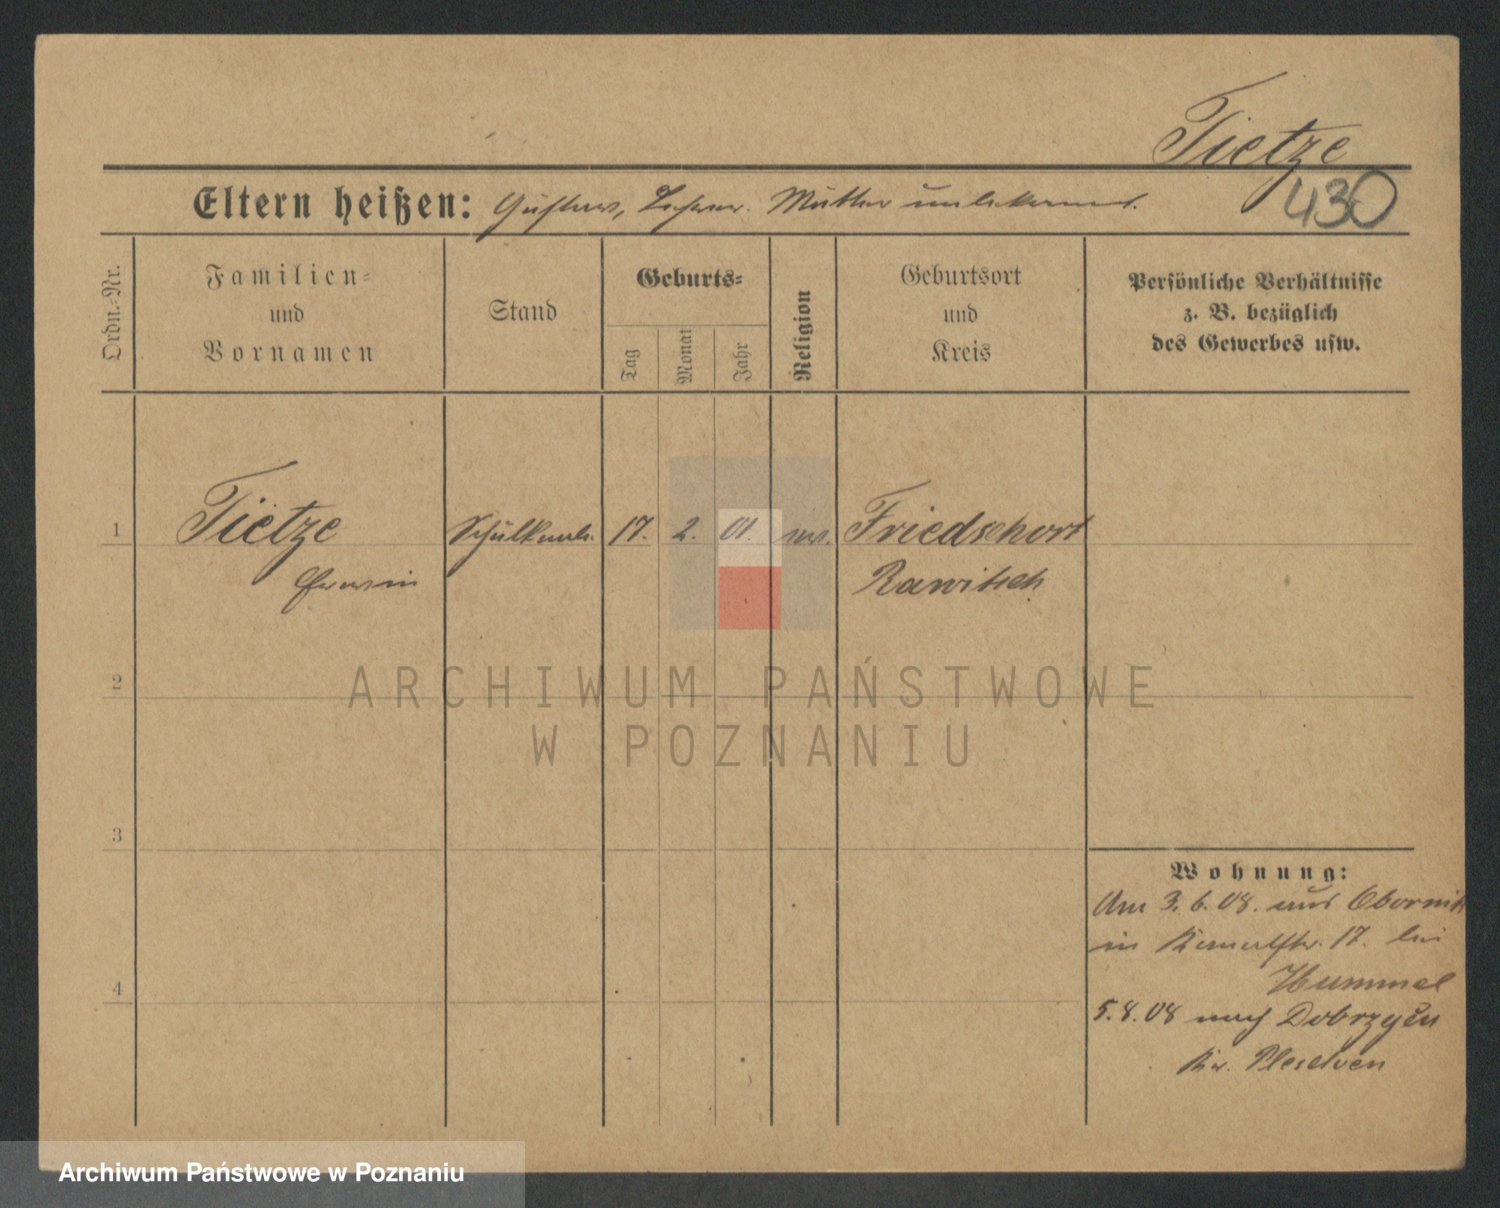 Tietze
430
Eltern heißen: Gustav, Lehrer. Mutter unbekannt.
Ordn.-Nr.
Familien-
und
Vornamen
Stand
Geburts-
Tag
Monat
Jahr
Religion
Geburtsort
und
Kreis
Persönliche Verhältnisse
z. B. bezüglich
des Gewerbes usw.
1 Tietze Schulknab. 17. 2. 01. Friedschort
Erwin Rawitsch
2
ARCHIWUM PAŃSTWOWE
W POZNANIU
3
4
Wohnung:
Am 3.6.08. aus Obornik
in 17. bei
Hummel
5.8.08 nach Dobrzyca
Kr. Pleschen
Archiwum Państwowe w Poznaniu